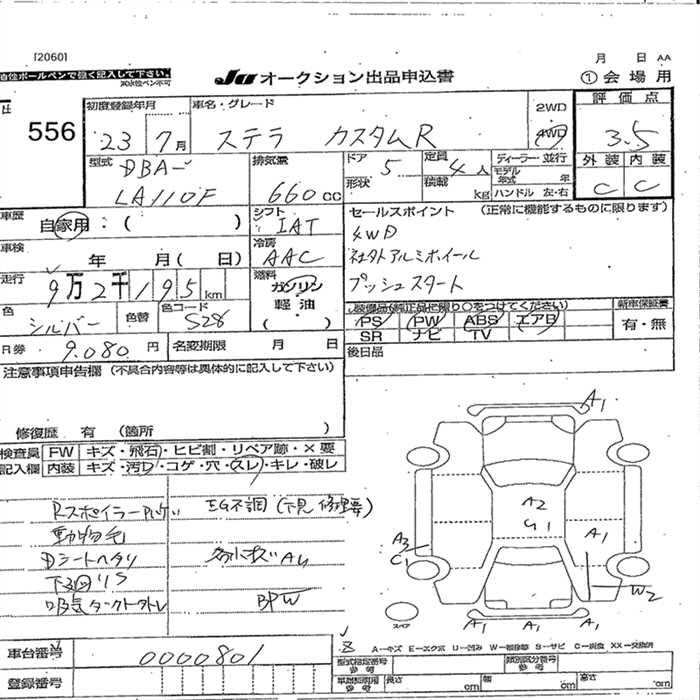 [2060]
月 日 AA
油性ボールペンで強く記入して下さい。
JU オークション出品申込書
① 会場用
556
初度登録年月
23 7月
車名・グレード
ステラ カスタムR
2WD
4WD
評価点
3.5
型式
DBA-
LA110F
排気量
660 cc
ドア
5
定員
4 人
形状
積載
kg
ディーラー・並行
モデル年式 年
ハンドル 左・右
外装 内装
C C
車歴
自家用：( )
シフト
IAT
セールスポイント (正常に機能するものに限ります)
4WD
社外アルミホイール
プッシュスタート
車検
年 月( 日)
冷房
AAC
走行
9万2千195 km
燃料
ガソリン
軽油
( )
色
シルバー
色替
色コード
S28
装備品(純正品に限り○をつけてください)
新車保証書
PS PW ABS エアB
SR ナビ TV
有・無
R券
9.080 円
名変期限 月 日
後日品
注意事項申告欄 (不具合内容等は具体的に記入して下さい)
修復歴 有 (箇所 )
検査員 FW キズ・飛石・ヒビ割・リペア跡・×要
記入欄 内装 キズ・汚れ・コゲ・穴・スレ・キレ・破レ
EG不調 (下見 修理要)
動物毛
Dシートヘタリ
下回りS
BPW
A1
A2
U1
A3
C1
A1
W2
A1 A1 A1
スペア
A-キズ E-エクボ U-凹み W-補修跡 S-サビ C-腐食 XX-交換済
車台番号
0000801
登録番号
型式指定番号 参考
類別区分番号 参考
長さ cm 幅 cm 高さ cm